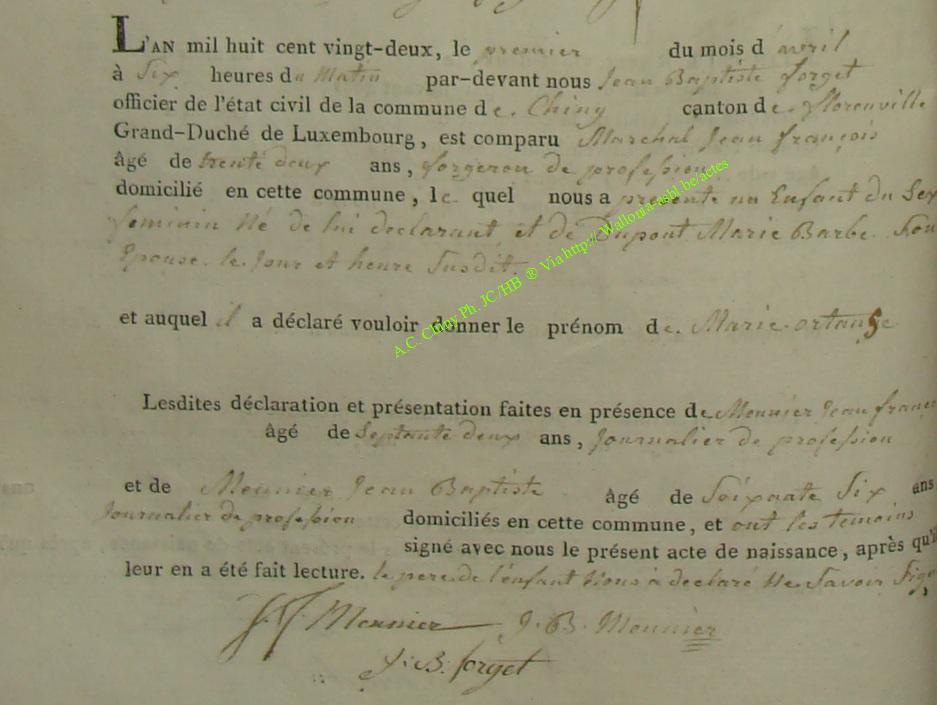 L'AN mil huit cent vingt-deux, le premier du mois d'avril
à Six heures du Matin par-devant nous Jean Baptiste forget
officier de l'état civil de la commune de Chiny canton de florenville
Grand-Duché de Luxembourg, est comparu Marchal Jean françois
âgé de trente deux ans, forgeron de profession
domicilié en cette commune, le quel nous a présenté un Enfant du Sex
feminin Né de lui declarant et de Dupont Marie Barbe Son
Epouse le Jour et heure Susdit.
et auquel il a déclaré vouloir donner le prénom de Marie ortanse
Lesdites déclaration et présentation faites en présence de Meunier Jean franç
âgé de Septante deux ans, Journalier de profession
et de Meunier Jean Baptiste âgé de Soixante Six ans
Journalier de profession domiciliés en cette commune, et ont les temoins
signé avec nous le présent acte de naissance, après qu'il
leur en a été fait lecture. le pere de l'enfant Nous à declaré Ne Savoir Signe
J. f. Meunier J. B. Meunier
J. B. forget
A.C. Chiny Ph. JC/HB ® Via http://Wallonia-asbl be/actes